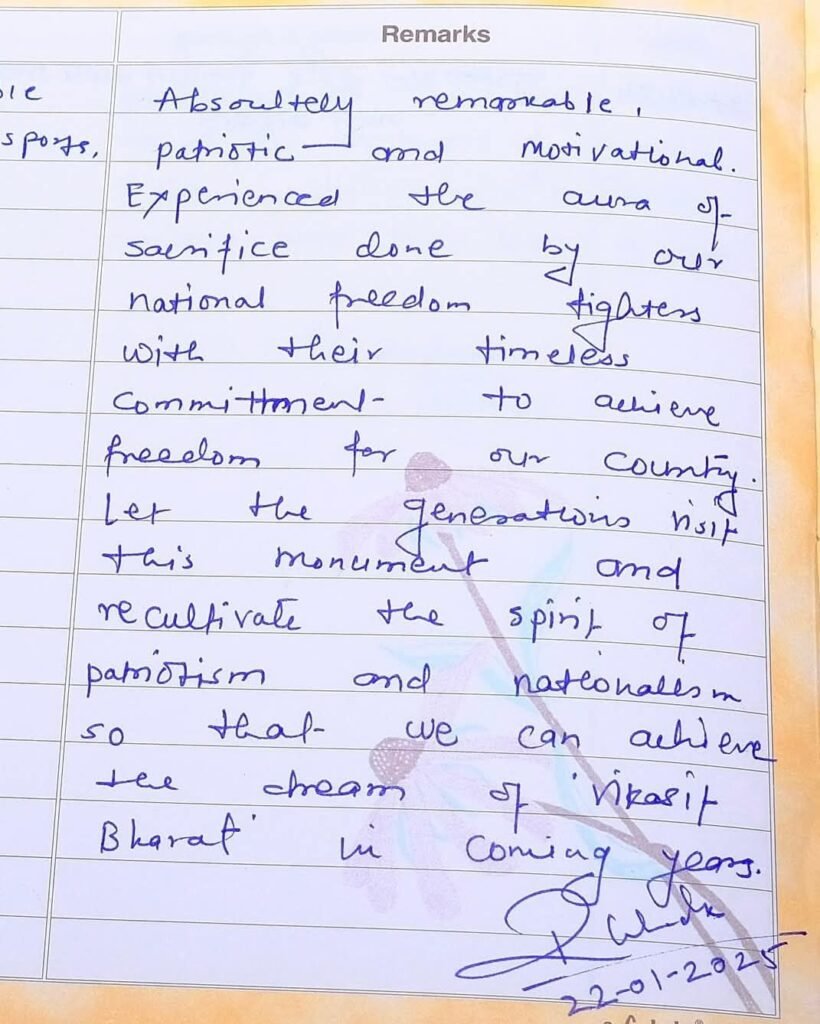 Remarks
sports,
Absoultely remarkable,
patriotic and motivational.
Experienced the aura of
sacrifice done by our
national freedom fighters
with their timeless
committment to achieve
freedom for our country.
Let the generations visit
this monument and
recultivate the spirit of
patriotism and nationalism
so that we can achieve
the dream of 'vikasit
Bharat' in coming years.
22-01-2025